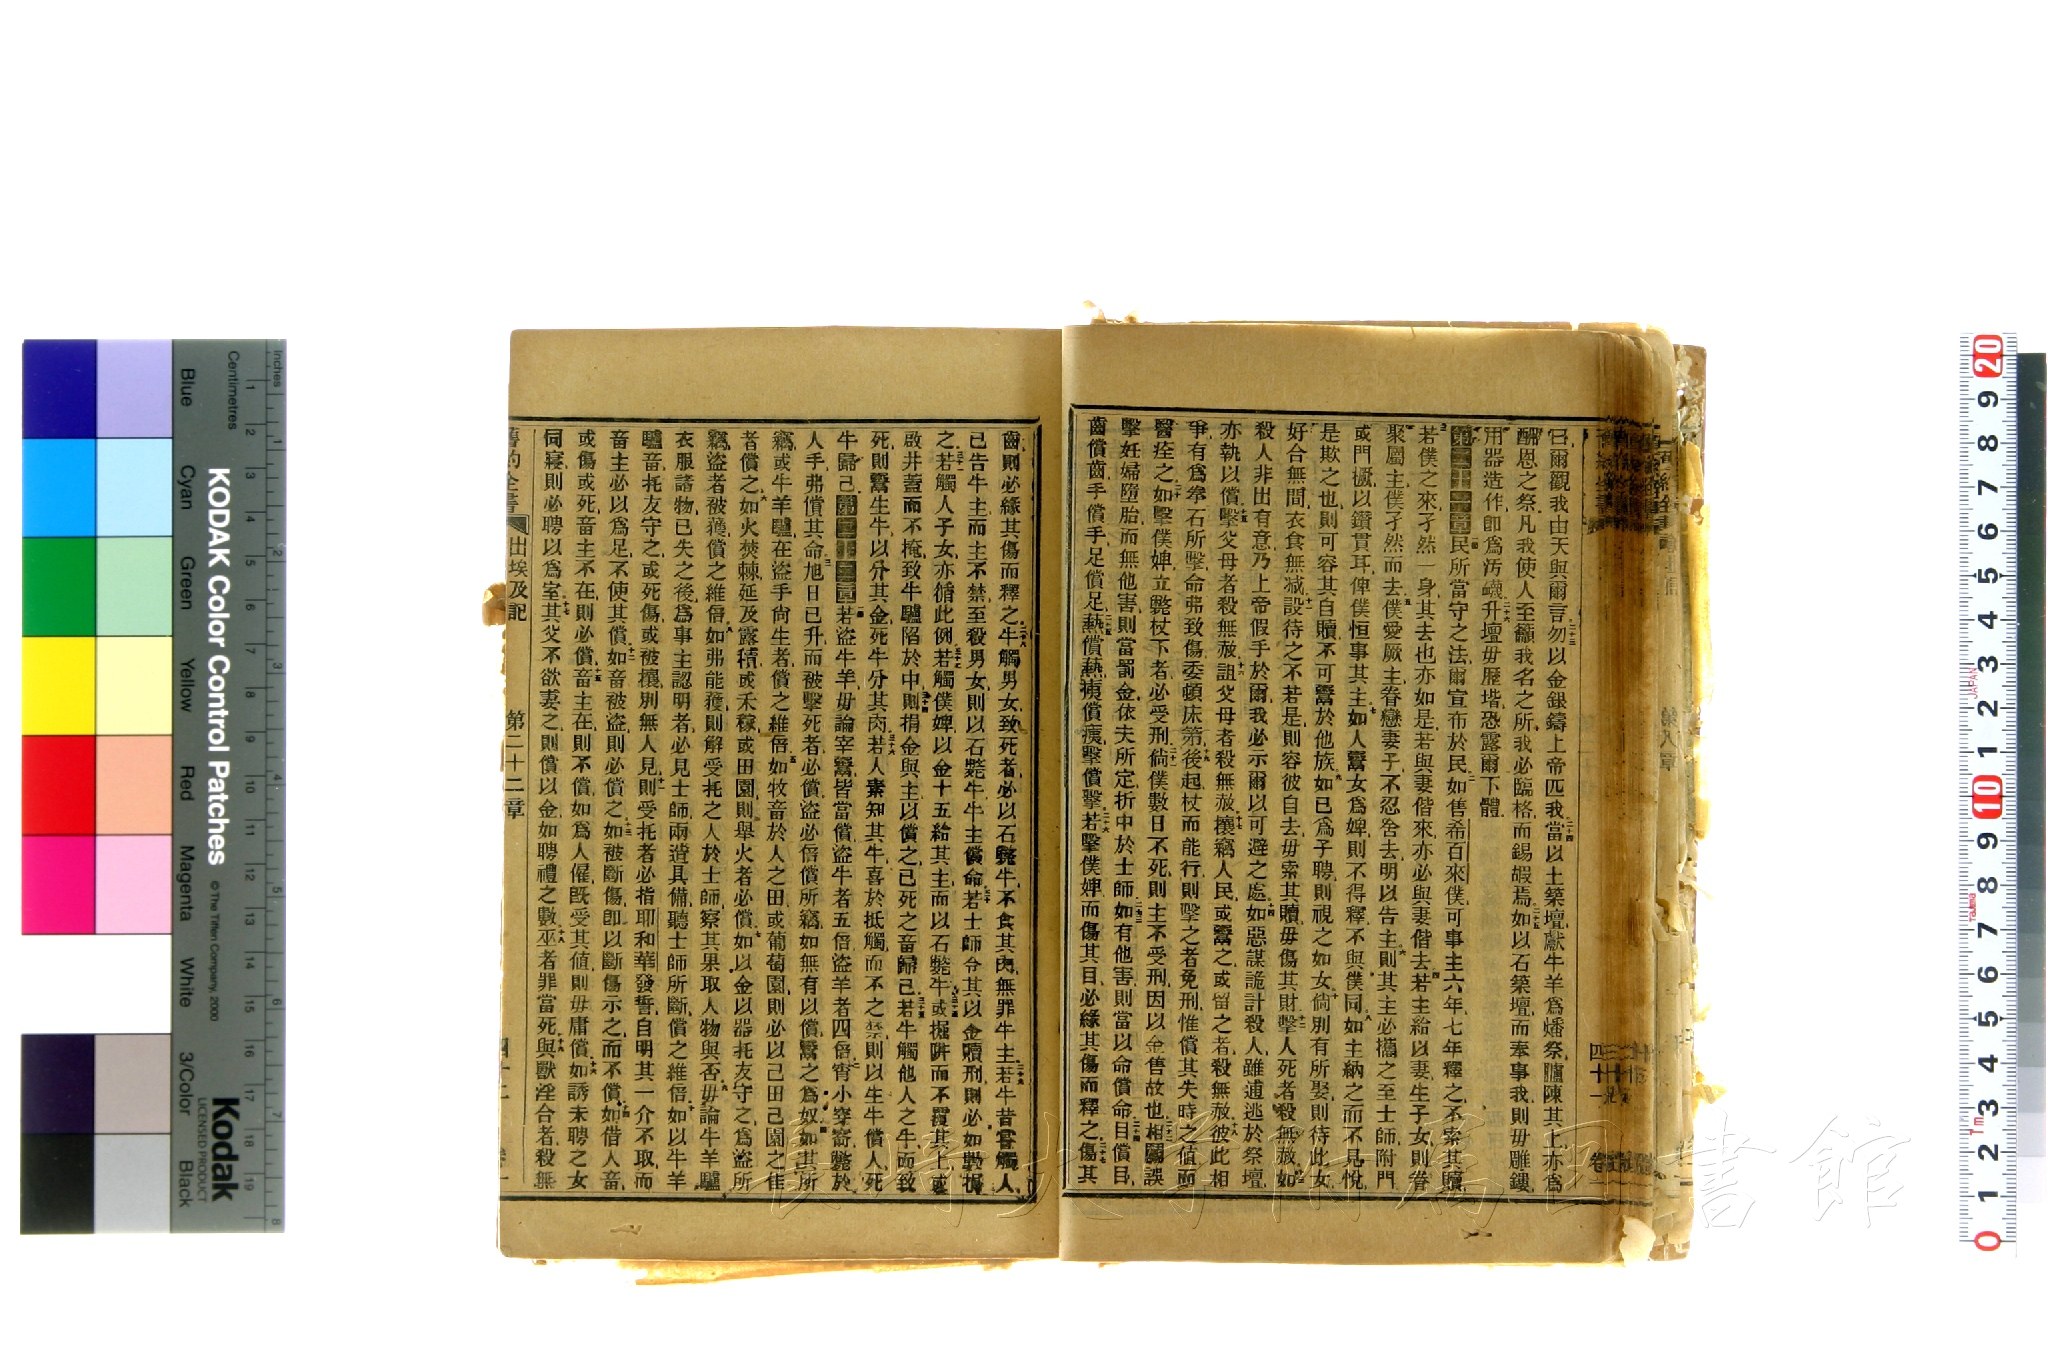 曰爾觀我由天與爾言勿以金銀鑄上帝匹我當以土築壇獻牛羊爲燔祭臚陳其上亦爲
酬恩之祭凡我使人至籲我名之所我必臨格而錫嘏焉如以石築壇而奉事我則毋雕鏤
用器造作卽爲汚衊升壇毋歷堦恐露爾下體
第二十一章民所當守之法爾宣布於民如售希百來僕可事主六年七年釋之不索其贖
若僕之來孑然一身其去也亦如是若與妻偕來亦必與妻偕去若主給以妻生子女則眷
聚屬主僕孑然而去僕愛厥主眷戀妻子不忍舍去明以告主則其主必攜之至士師附門
或門橛以鑽貫耳俾僕恒事其主如人鬻女爲婢則不得釋不與僕同如主納之而不見悅
是欺之也則可容其自贖不可鬻於他族如已爲子聘則視之如女倘別有所娶則待此女
好合無間衣食無減設待之不若是則容彼自去毋索其贖毋傷其財擊人死者殺無赦如
殺人非出有意乃上帝假手於爾我必示爾以可避之處如惡謀詭計殺人雖逋逃於祭壇
亦執以償擊父母者殺無赦詛父母者殺無赦攘竊人民或鬻之或留之者殺無赦彼此相
爭有爲拳石所擊命弗致傷委頓床笫後起杖而能行則擊之者免刑惟償其失時之値而
醫痊之如擊僕婢立斃杖下者必受刑倘僕數日不死則主不受刑因以金售故也相鬭誤
擊妊婦墮胎而無他害則當罰金依夫所定折中於士師如有他害則當以命償命目償目
齒償齒手償手足償足爇償爇痍償痍擊償擊若擊僕婢而傷其目必緣其傷而釋之傷其
齒則必緣其傷而釋之牛觸男女致死者必以石斃牛不食其肉無罪牛主若牛昔嘗觸人
已告牛主而主不禁至殺男女則以石斃牛牛主償命若士師令其以金贖刑則必如數捐
之若觸人子女亦循此例若觸僕婢以金十五給其主而以石斃牛或掘阱而不覆其上或
啟井蓋而不掩致牛驢陷於中則捐金與主以償之已死之畜歸己若牛觸他人之牛而致
死則鬻生牛以分其金死牛分其肉若人素知其牛喜於抵觸而不之禁則以生牛償人死
牛歸己第二十二章若盜牛羊毋論宰鬻皆當償盜牛者五倍盜羊者四倍宵小穿窬斃於
人手弗償其命旭日已升而被擊死者必償盜必倍償所竊如無有以償鬻之爲奴如其所
竊或牛羊驢在盜手尙生者償之維倍如牧畜於人之田或葡萄園則必以己田己園之佳
者償之如火焚棘延及露積或禾稼或田園則舉火者必償如以金以器托友守之爲盜所
竊盜者被獲償之維倍如弗能獲則解受托之人於士師察其果取人物與否毋論牛羊驢
衣服諸物已失之後爲事主認明者必見士師兩造具備聽士師所斷償之維倍如以牛羊
驢畜托友守之或死傷或被攘別無人見則受托者必指耶和華發誓自明其一介不取而
畜主必以爲足不使其償如畜被盜則必償之如被斷傷卽以斷傷示之而不償如借人畜
或傷或死畜主不在則必償畜主在則不償如爲人僱旣受其値則毋庸償如誘未聘之女
同寢則必聘以爲室其父不欲妻之則償以金如聘禮之數巫者罪當死與獸淫合者殺無
舊約全書 出埃及記 第二十二章 四十二
四十一
KODAK Color Control Patches
© The Tiffen Company, 2000
Kodak
LICENSED PRODUCT
Inches
Centimetres
Blue Cyan Green Yellow Red Magenta White 3/Color Black
長崎大学附属図書館